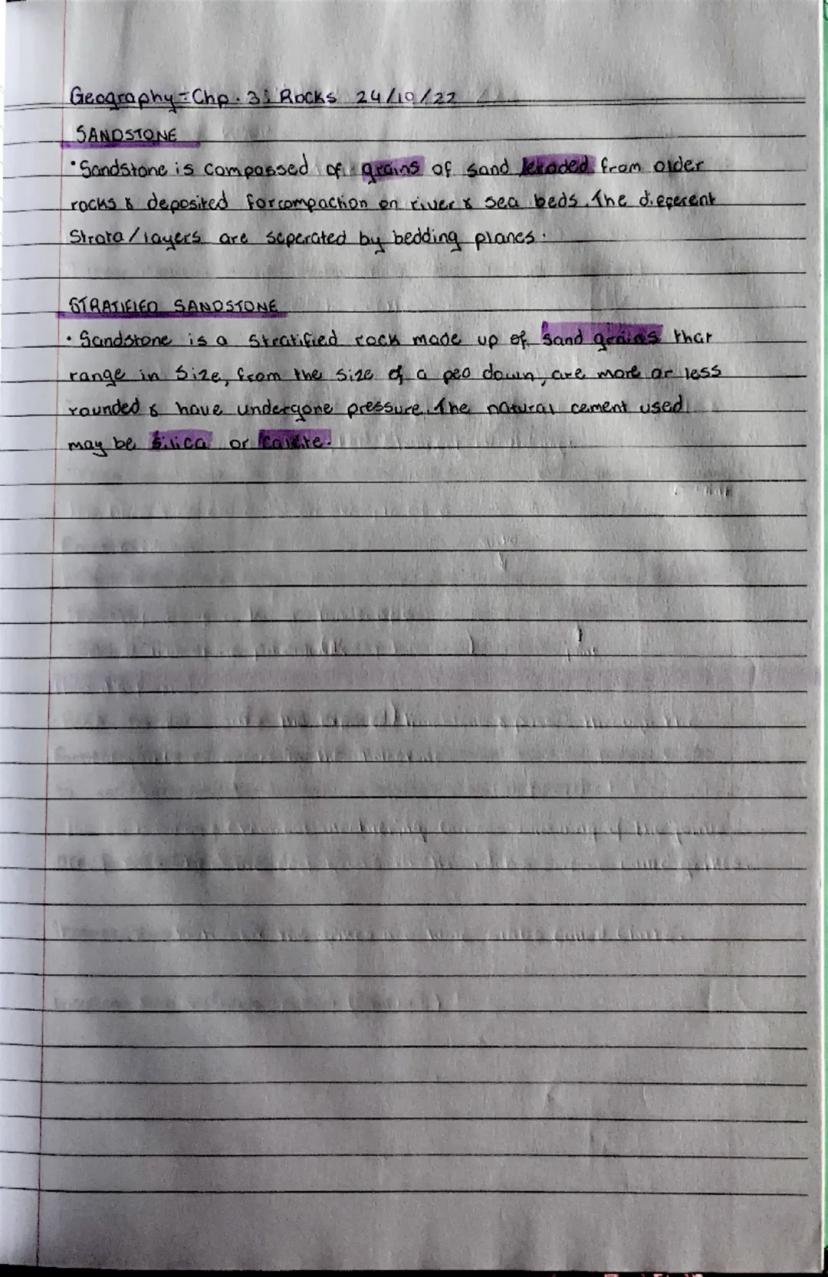 Geography - Chp. 3: Rocks 24/10/22
SANDSTONE
• Sandstone is compassed of grains of sand eroded from older
rocks & deposited for compaction on river & sea beds. The diferent
Strata/layers are seperated by bedding planes.
STRATIFIED SANDSTONE
• Sandstone is a stratified rock made up of sand grains that
range in size, from the size of a pea down, are more or less
rounded & have undergone pressure. The natural cement used
may be silica or calcite.